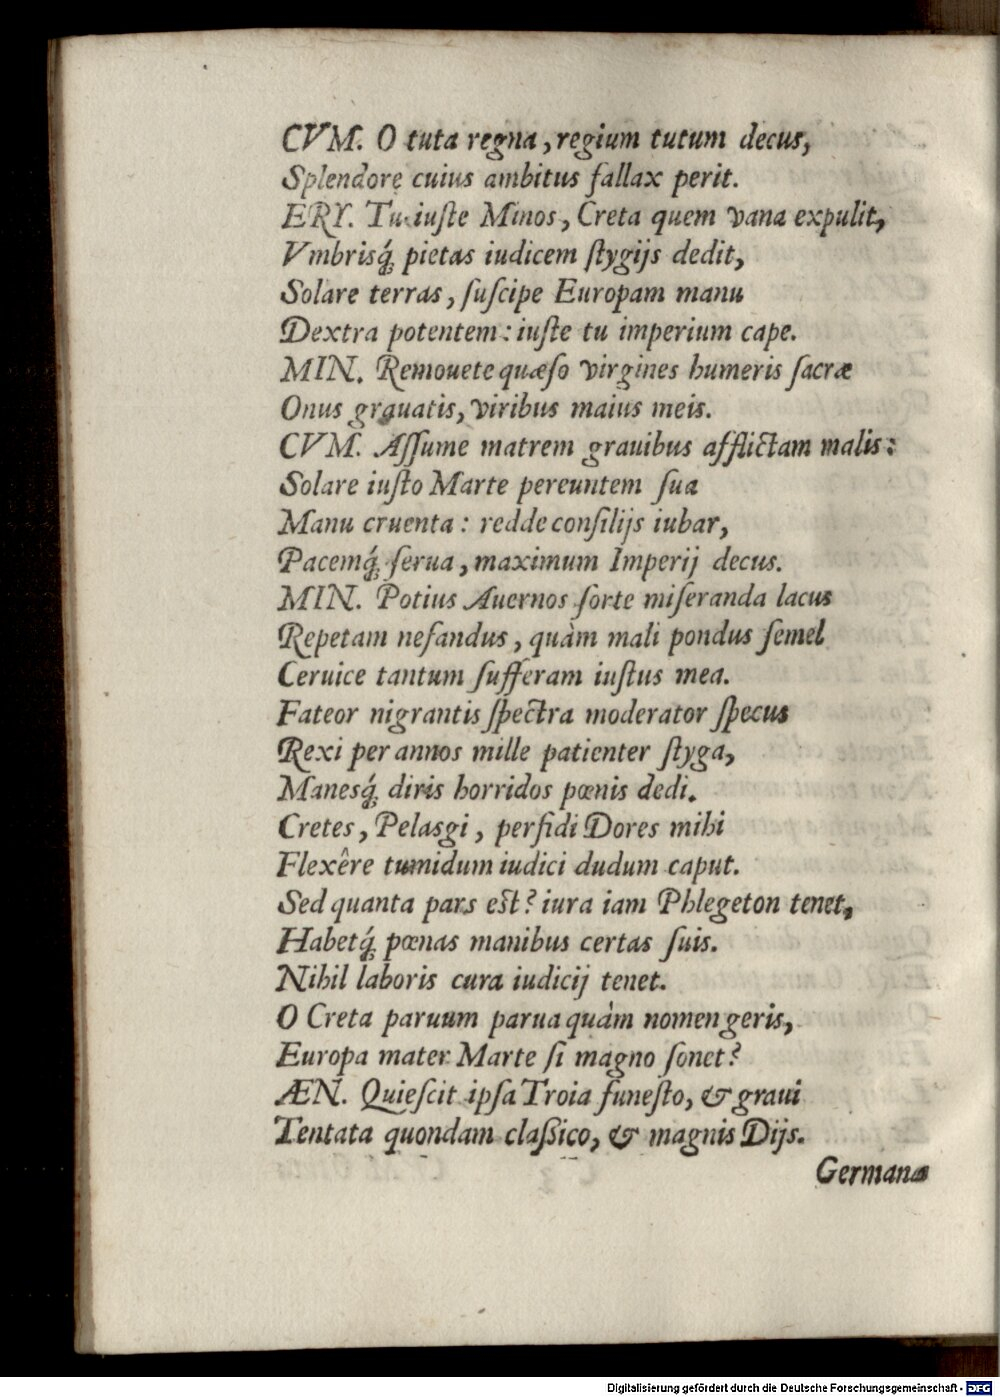 CVM. O tuta regna, regium tutum decus,
Splendore cuius ambitus fallax perit.
ERY. Tu iuſte Minos, Creta quem vana expulit,
Vmbrisq́; pietas iudicem ſtygijs dedit,
Solare terras, ſuſcipe Europam manu
Dextra potentem: iuſte tu imperium cape.
MIN. Remouete quæſo virgines humeris ſacræ
Onus grauatis, viribus maius meis.
CVM. Aſſume matrem grauibus afflictam malis:
Solare iuſto Marte pereuntem ſua
Manu cruenta: redde conſilijs iubar,
Pacemq́; ſerua, maximum Imperij decus.
MIN. Potius Auernos ſorte miſeranda lacus
Repetam nefandus, quàm mali pondus ſemel
Ceruice tantum ſufferam iuſtus mea.
Fateor nigrantis ſpectra moderator ſpecus
Rexi per annos mille patienter ſtyga,
Manesq́; diris horridos pœnis dedi.
Cretes, Pelasgi, perfidi Dores mihi
Flexêre tumidum iudici dudum caput.
Sed quanta pars eſt? iura iam Phlegeton tenet,
Habetq́; pœnas manibus certas ſuis.
Nihil laboris cura iudicij tenet.
O Creta paruum parua quàm nomen geris,
Europa mater Marte ſi magno ſonet?
ÆN. Quieſcit ipſa Troia funeſto, & graui
Tentata quondam claßico, & magnis Dijs.
Germana
Digitalisierung gefördert durch die Deutsche Forschungsgemeinschaft - DFG